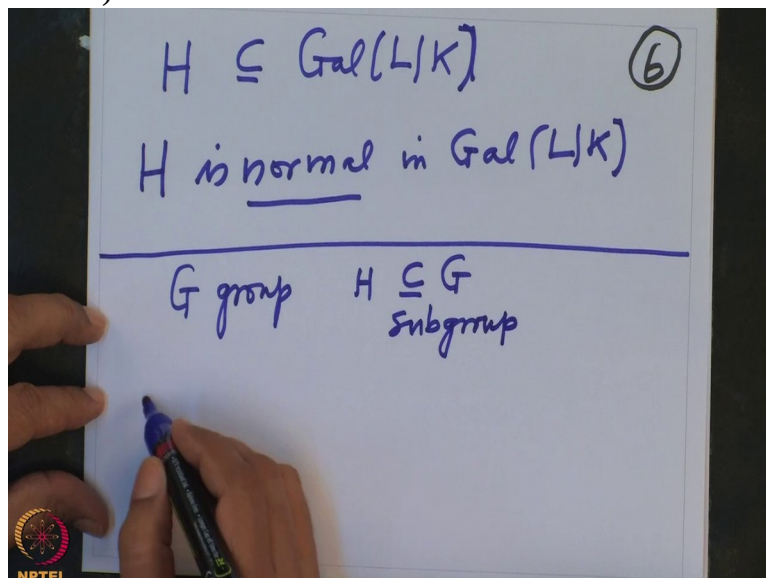 H ⊆ Gal(L|K)
6
H is normal in Gal(L|K)
G group H ⊆ G
subgroup
NPTEL